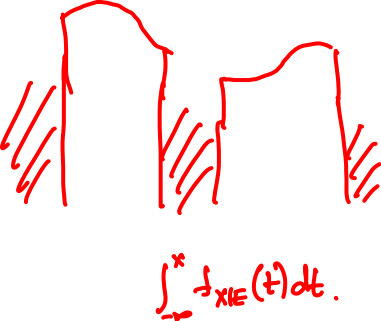 ∫_{-∞}^{x} f_{X|E}(t) dt.